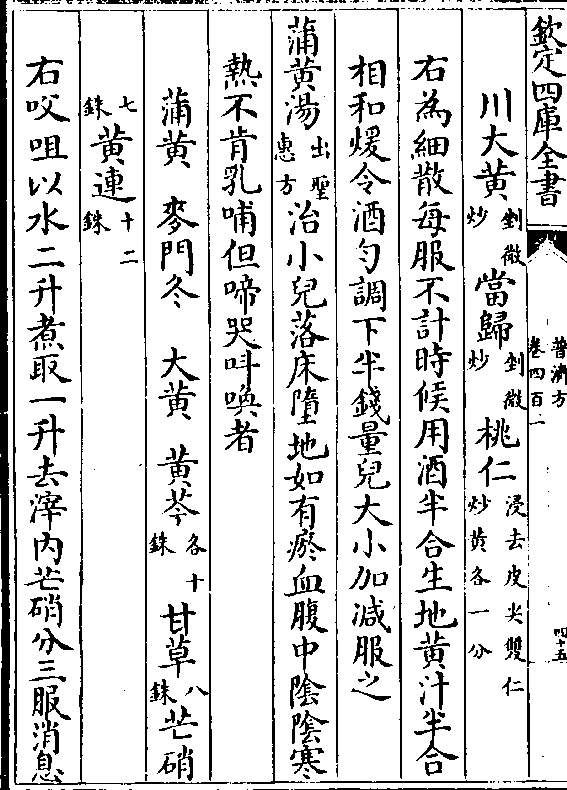 欽定四庫全書
普濟方
卷四百一
四十五
川大黄剉微炒當歸剉微炒桃仁浸去皮尖雙仁炒黄各一分
右為細散每服不計時候用酒半合生地黄汁半合
相和煖令酒勻調下半錢量兒大小加減服之
蒲黄湯出聖惠方治小兒落床墮地如有瘀血腹中陰陰寒
熱不肯乳哺但啼哭呌喚者
蒲黄 麥門冬 大黄 黄芩各十銖甘草八銖芒硝
七銖黄連十二銖
右㕮咀以水二升煮取一升去滓内芒硝分三服消息